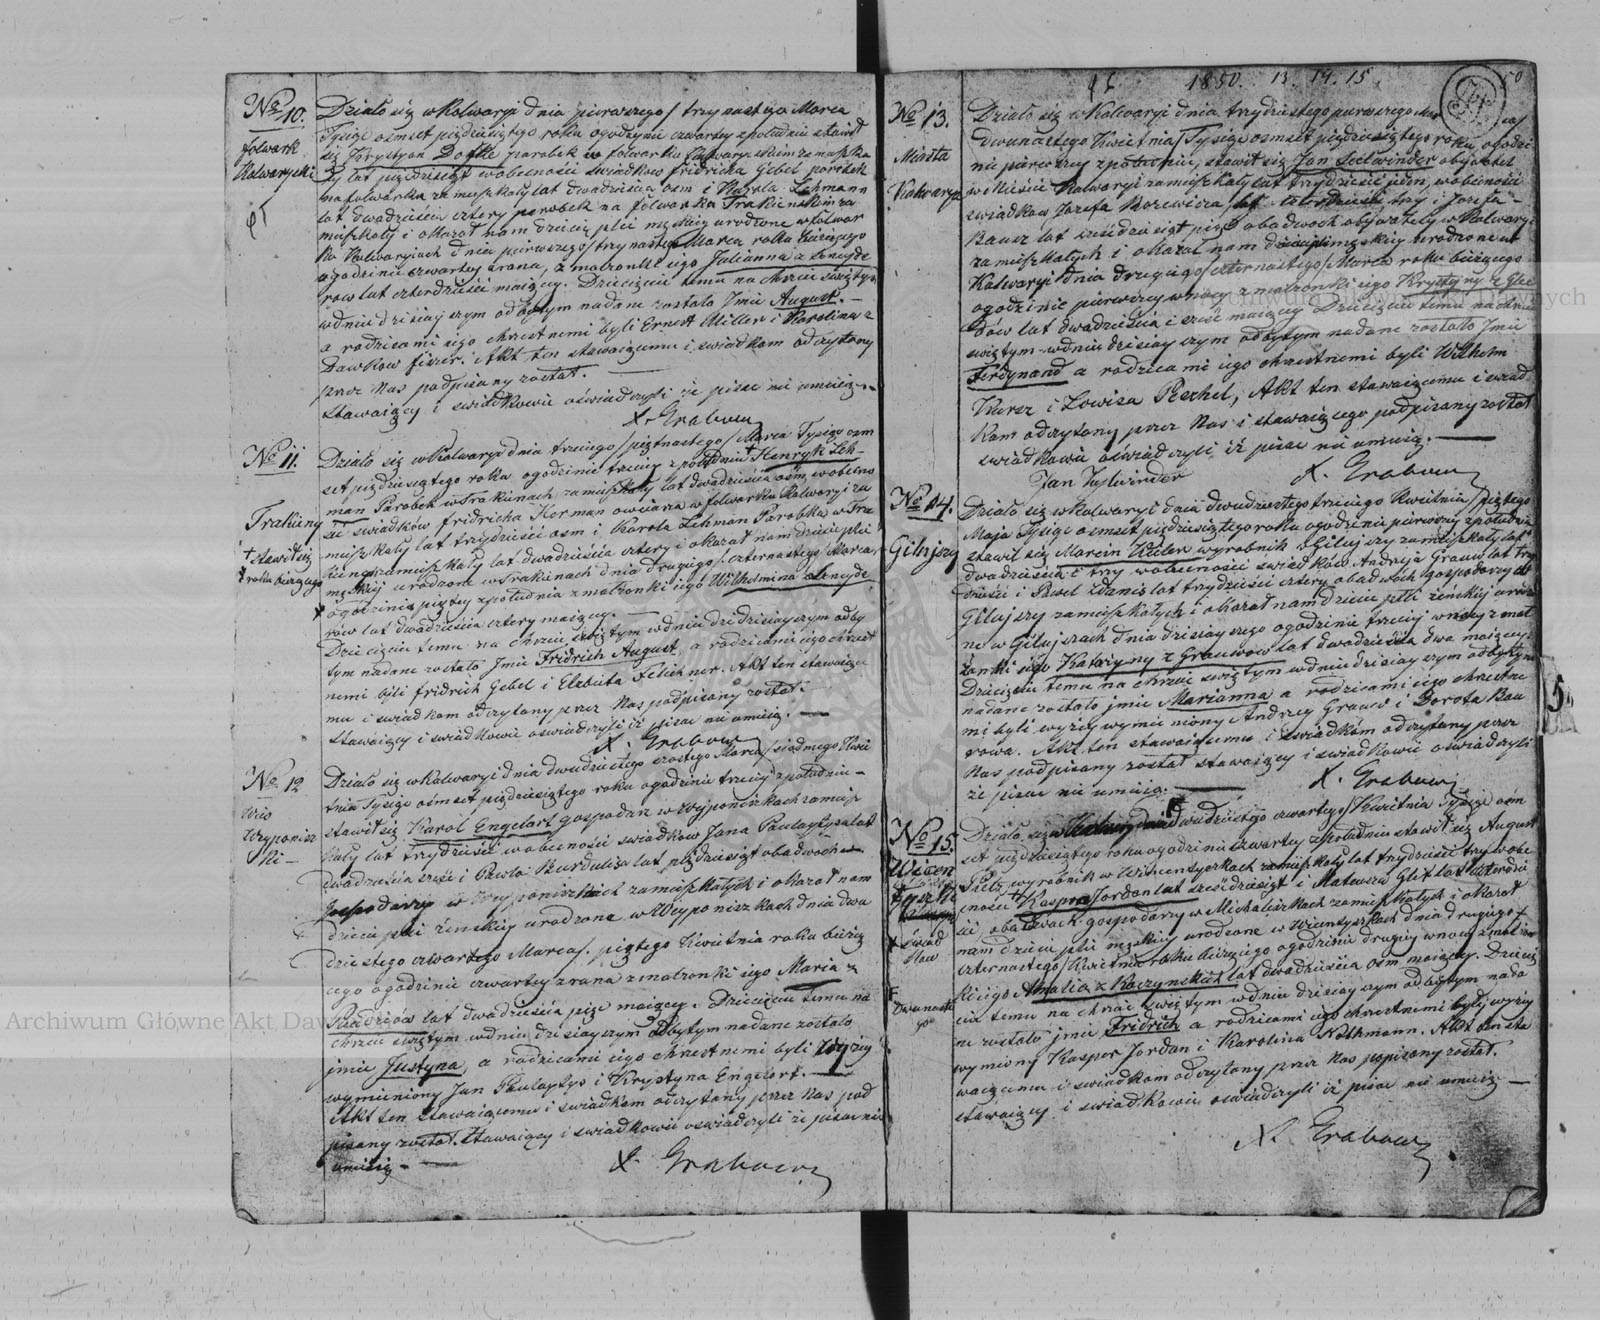 No 10.
folwark
Kalwaryiski
Działo się w Kalwaryi dnia pierwszego / trzynastego Marca
Tysiąc osmset pięćdziesiątego roku o godzinie czwartey z południa stawił
się Krystyan parobek w folwarku Kalwaryiskim zamieszka
ły lat pięćdziesiąt w obecności świadków Fridricha Gebel parobek
na folwarku zamieszkały lat dwadzieścia osm i Karola Lehmann
lat dwadzieścia cztery parobek na folwarku Trakieńskim za
mieszkały i okazał nam dziecię płci męskiey urodzone w folwar
ku Kalwaryiach dnia pierwszego / trzynastego Marca roku bieżącego
o godzinie czwartey z rana, z małżonki iego Julianna z Sencyde
row lat czterdzieści maiącey. Dziecięciu temu na chrzcie świętym
w dniu dzisiayszym odbytym nadane zostało Imie August. —
a rodzicami iego chrzestnemi byli Ernest Miller i Karolina z
Dawkow fiszer. Akt ten stawaiącemu i świadkom odczytany
przez Nas podpisany został. —
Stawaiący i świadkowie oświadczyli iż pisac nie umieią. —
X. Grabow
No 11.
Trakieny
+ stawił się
+ roku bieżącego
Działo się w Kalwaryi dnia trzeciego / piętnastego / Marca Tysiąc osm
set pięćdziesiątego roku o godzinie trzeciey z południa + Henryk Leh-
man Parobek w Trakienach zamieszkały lat dwadzieścia osm, w obecno
ści świadków Fridricha Herman owczarza w folwarku Kalwaryi za
mieszkały lat trzydzieści osm i Karola Lehman Parobka w Tra
kienach zamieszkały lat dwadzieścia cztery i okazał nam dziecię płci
męskiey urodzone w Trakinach dnia drugiego / czternastego / Marca,
o godzinie piątey z południa z małżonki iego Wilhelmina z Sencyde
row lat dwadzieścia cztery maiącey. —
Dziecięciu temu na chrzcie świętym w dniu dzisiayszym odby
tym nadane zostało Imie Fridrich August, a rodzicami iego chrzest
nemi byli Fridrich Gebel i Elzbieta Felchner. Akt ten stawaiące
mu i świadkom odczytany przez Nas podpisany został.
Stawaiący i świadkowie oświadczyli iż pisac nie umieią. —
X. Grabow
No 12
Wio
Wryponisz
ki —
Działo się w Kalwaryi dnia dwudziestego szostego Marca / siodmego Kwie
tnia Tysiąc osmset pięćdziesiątego roku o godzinie trzeciey z południa —
stawił się Karol Engelort gospodarz w Wyponiszkach zamiesz
kały lat trzydzieści w obecności świadkow Jana Paulaptysa lat
dwadzieścia sześć i Pawła Burdulisa lat pięćdziesiąt obadwoch
Gospodarzy w Wryponiszkach zamieszkałych i okazał nam
dziecię płci żeńskiey urodzone w Wryponiszkach dnia dwu
dziestego czwartego Marca / piątego Kwietnia roku bieżą
cego o godzinie czwartey z rana z małżonki iego Maria z
lat dwadzieścia pięc maiącey. Dziecięciu temu na
chrzcie świętym w dniu dzisiayszym odbytym nadane zostało
imie Justyna, a rodzicami iego chrzestnemi byli wyżey
wymieniony Jan Paulaptys i Krystyna Engelort. —
Akt ten stawaiącemu i świadkom odczytany przez Nas pod
pisany został. Stawaiący i świadkowie oświadczyli że pisac nie
umieią —
X. Grabow
1850. 13. 14. 15.
No 13.
Miasta
Kalwarya
Działo się w Kalwaryi dnia trzydziestego pierwszego Mar
dwunastego Kwietnia / Tysiąc osmset pięćdziesiątego roku, o godzi
nie pierwszey z południa, stawił się Jan Seelwinder obywatel
w Mieście Kalwaryi zamieszkały lat trzydzieści ieden, w obecności
świadkow Jozefa Borewicza lat czterdzieści trzy i Jozefa
Bauer lat sześćdziesiąt pięć obadwoch obywately w Kalwaryi
zamieszkałych i okazał nam dziecię płci męskiey urodzone w
Kalwaryi dnia drugiego / czternastego / Marca roku bieżącego
o godzinie pierwszey w nocy z małżonki iego Krystyny z Gle
dow lat dwadzieścia i sześć maiącey Dziecięciu temu na chrzcie
świętym w dniu dzisiayszym odbytym nadane zostało Imie
Ferdynand a rodzicami iego chrzestnemi byli Wilhelm
Kurz i Lowisa Rechel, Akt ten stawaiącemu i świad
kom odczytany przez Nas i stawaiącego podpisany został
świadkowie oświadczyli iż pisac nie umieią. —
X. Grabow
No 14.
Giłujszy
Działo się w Kalwaryi dnia dwudziestego trzeciego Kwietnia / piątego
Maja Tysiąc osmset pięćdziesiątego roku o godzinie pierwszey z południa
stawił się Marcin wyrobnik w Giłujszy zamieszkały lat
dwadzieścia i trzy w obecności świadków Andrzeja Grauw lat trzy
dzieści i Paweł Zdanis lat trzydzieści cztery obadwóch gospodarzy w
Giłujszy zamieszkałych i okazał nam dziecię płci żeńskiey urodzo
ne w Giłujszach dnia dzisiayszego o godzinie trzeciey w nocy z mał
żonki iego Katarzyny z Grauwow lat dwadzieścia dwa maiącey.
Dziecięciu temu na chrzcie świętym w dniu dzisiayszym odbytym
nadane zostało imie Marianna a rodzicami iego chrzestne
mi byli wyżey wymieniony Andrzey Grauw i Dorota Bau
rowa. Akt ten stawaiącemu i świadkóm odczytany przez
Nas podpisany został stawaiący i świadkowie oświadczyli
że pisac nie umieią. —
X. Grabow
No 15.
świad
ków
Dwunaste
go
Działo się w Kalwaryi dnia dwudziestego czwartego / Kwietnia Tysiąc osm
set pięćdziesiątego roku o godzinie czwartey z południa stawił się August
Pielz wyrobnik w Wincentyszkach zamieszkały lat trzydzieści trzy w obe
cności + Kaspra Jordan lat sześćdziesiąt i Mateusza Glit lat czterdzie
ści, obadwoch gospodarzy w Michaliszkach zamieszkałych i okazał
nam dziecię płci męskiey urodzone w Wicentyszkach dnia drugiego +
czternastego / Kwietnia roku bieżącego o godzinie drugiey w nocy z małżon
ki iego Amalia z Kaczynskich lat dwadzieścia osm maiącey. Dziecię
ciu temu na chrzcie świętym w dniu dzisiayszym odbytym nada
ne zostało imie Fridrich a rodzicami iego chrzestnemi byli wyżey
wymieniony Kasper Jordan i Karolina Nothmann. Akt ten sta
waiącemu i świadkom odczytany przez Nas popisany został.
stawaiący i świadkowie oświadczyli iż pisac nie umieią —
X. Grabow
Archiwum Główne Akt Dawnych